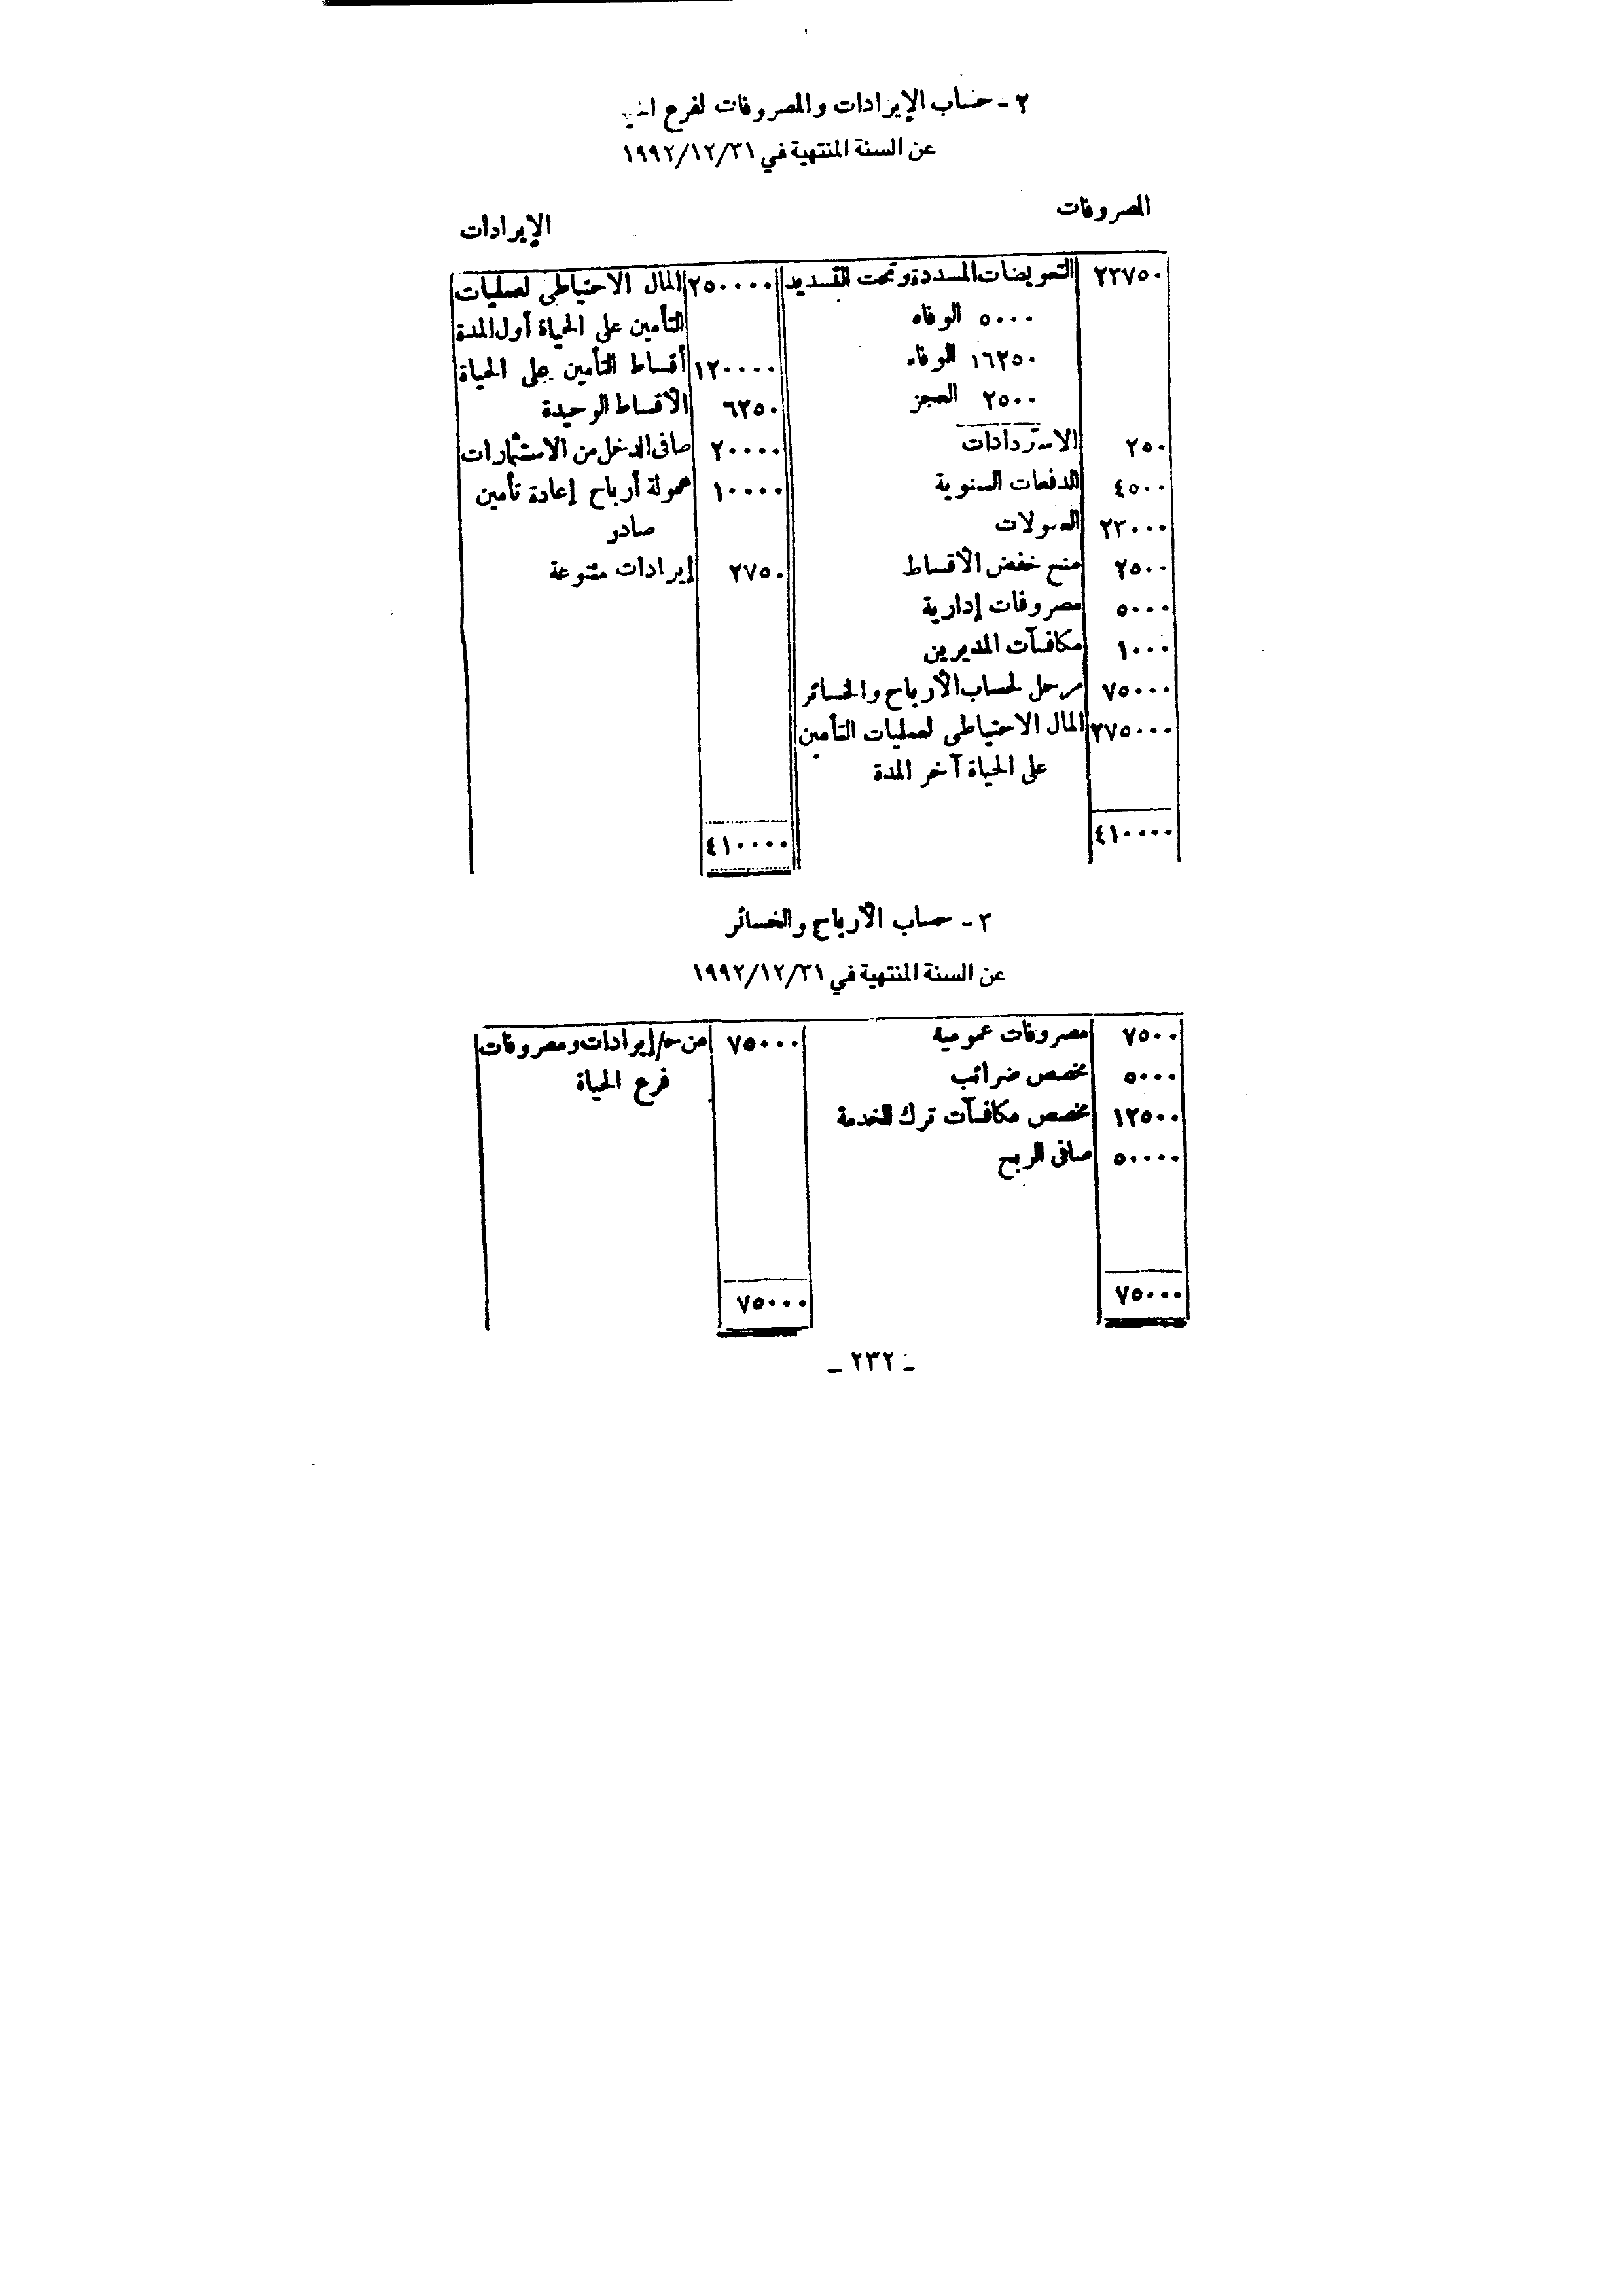 ٢ - حساب الإيرادات والمصروفات لفرع
عن السنة المنتهية في ١٩٩٢/١٢/٣١
المصروفات
الإيرادات
٢٣٧٥٠ التعويضات المسددة وتحت التسديد ٢٥٠٠٠٠ المال الاحتياطى لعمليات
٥٠٠٠ الوفاه التأمين على الحياة أول المدة
١٦٢٥٠ الوفاه ١٢٠٠٠٠ أقساط التأمين على الحياة
٢٥٠٠ العجز ٦٢٥٠ الأقساط الوحيدة
٢٥٠ الاستردادات ٢٠٠٠٠ صافى الدخل من الاستثمارات
٤٥٠٠ الدفعات السنوية ١٠٠٠٠ عمولة أرباح إعادة تأمين
٢٣٠٠٠ العمولات صادر
٢٥٠٠ منح خفض الأقساط ٢٧٥٠ إيرادات متنوعة
٥٠٠٠ مصروفات إدارية
١٠٠٠ مكافآت المديرين
٧٥٠٠٠ مرحل لحساب الأرباح والخسائر
٢٧٥٠٠٠ المال الاحتياطى لعمليات التأمين
على الحياة آخر المدة
٤١٠٠٠٠ ٤١٠٠٠٠
٣ - حساب الأرباح والخسائر
عن السنة المنتهية في ١٩٩٢/١٢/٣١
٧٥٠٠ مصروفات عمومية ٧٥٠٠٠ من حـ/إيرادات ومصروفات
٥٠٠٠ مخصص ضرائب فرع الحياة
١٢٥٠٠ مخصص مكافآت ترك الخدمة
٥٠٠٠٠ صافى الربح
٧٥٠٠٠ ٧٥٠٠٠
- ٢٣٢ -